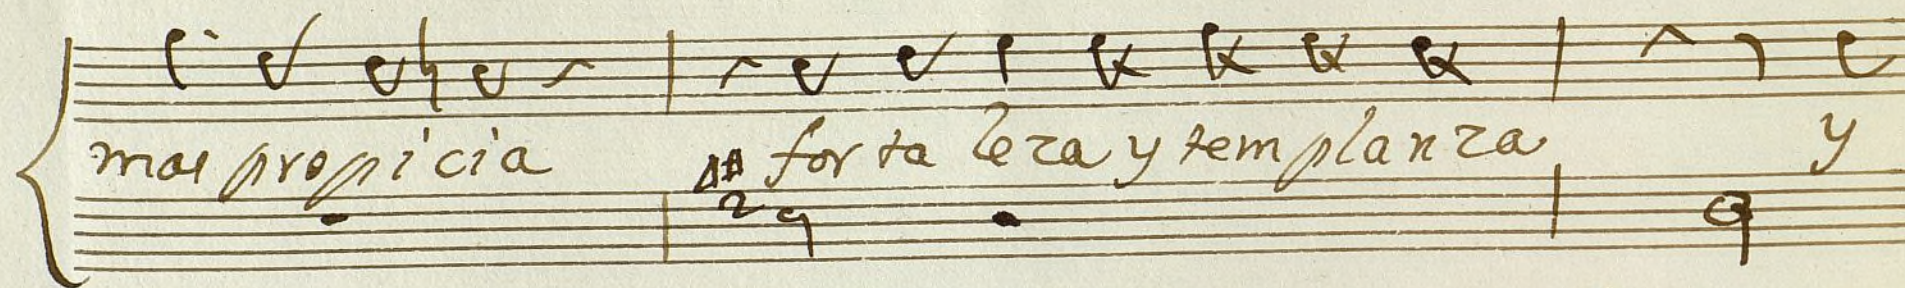 mas propicia fortaleza y templanza y
4#
2